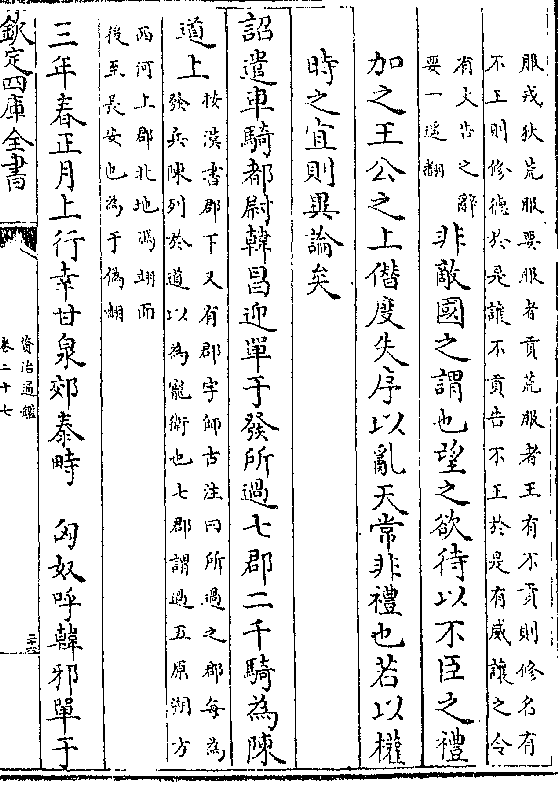 服戎狄荒服要服者貢荒服者王有不貢則修名有
不王則修德於是讓不貢告不王於是有威讓之令
有文告之辭
要一遥翻
非敵國之謂也望之欲待以不臣之禮
加之王公之上僭度失序以亂天常非禮也若以權
時之宜則異論矣
詔遣車騎都尉韓昌迎單于發所過七郡二千騎為陳
道上
按漢書郡下又有郡字師古注曰所過之郡每為
發兵陳列於道以為寵衛也七郡謂過五原朔方
西河上郡北地馮翊而
後至長安也為于偽翻
三年春正月上行幸甘泉郊泰畤 匈奴呼韓邪單于
欽定四庫全書
資治通鑑
卷二十七